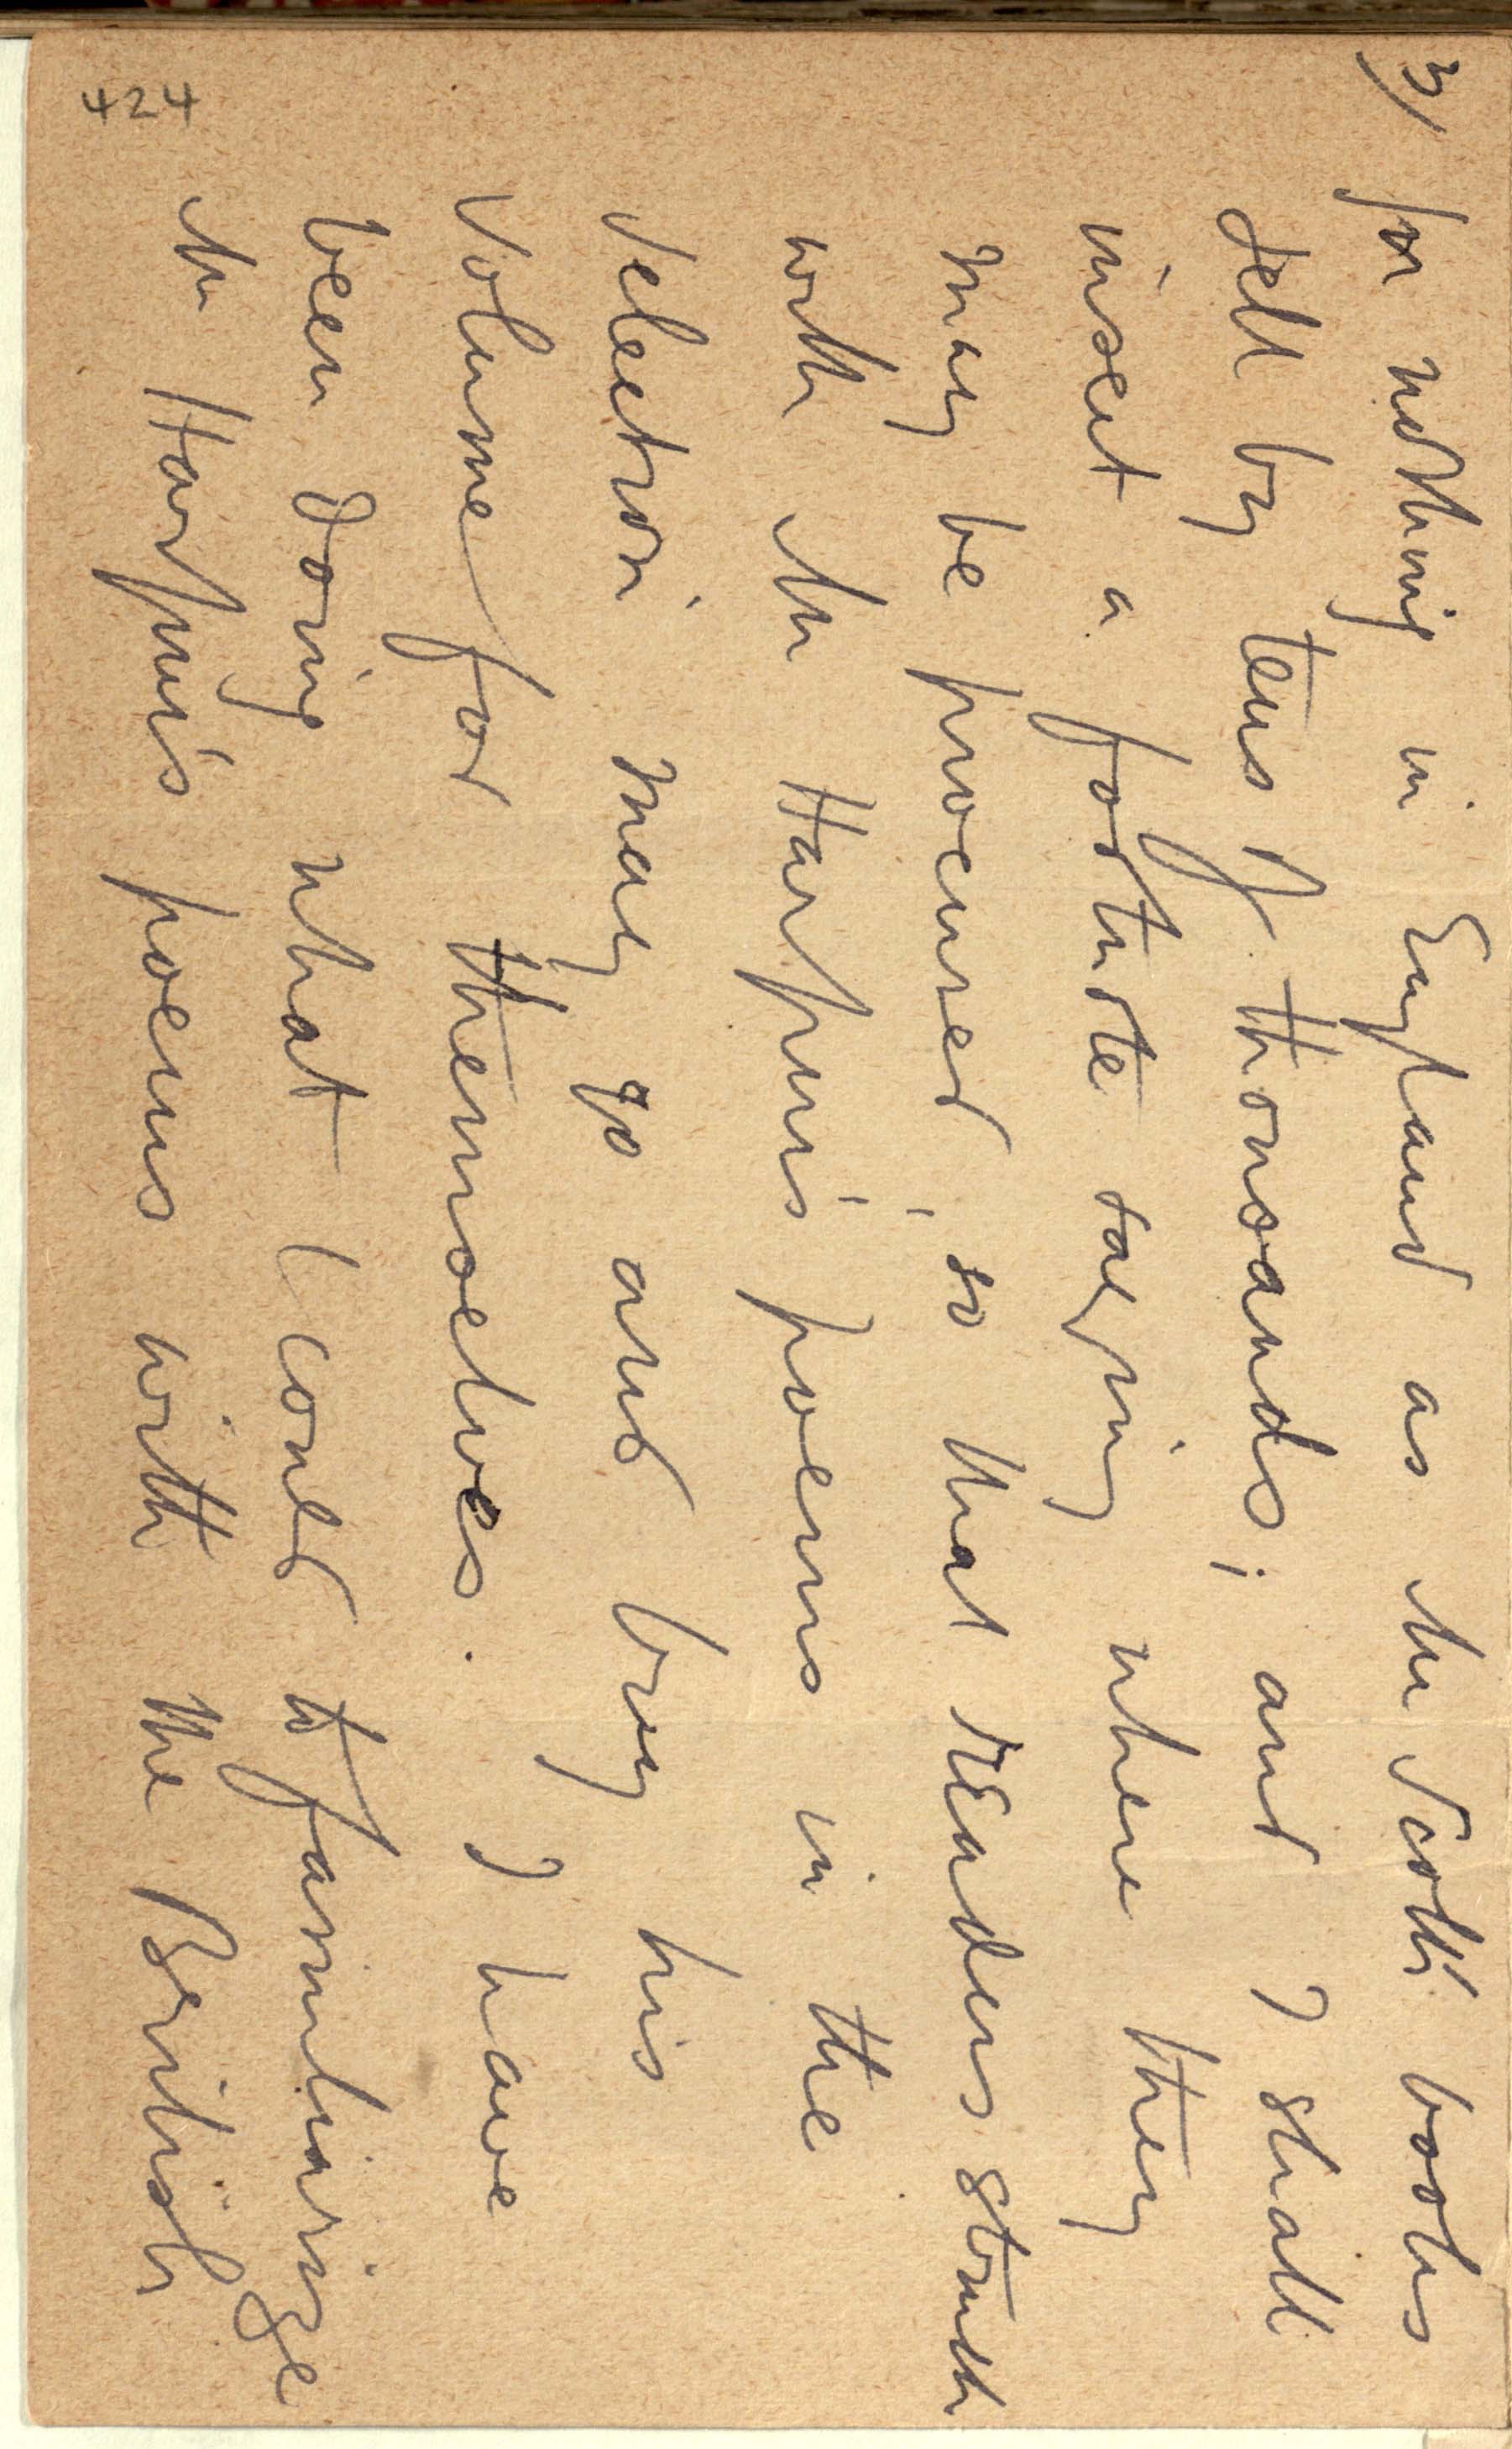 3/
for nothing in England as the Scott books
sell by tens of thousands; and I shall
insert a footnote saying where they
may be procured, so that readers struck
with Mr Harpur's poems in the
selection may go and buy his
volume for themselves. I have
been doing what I could to familiarize
Mr Harpur's poems with the British
424